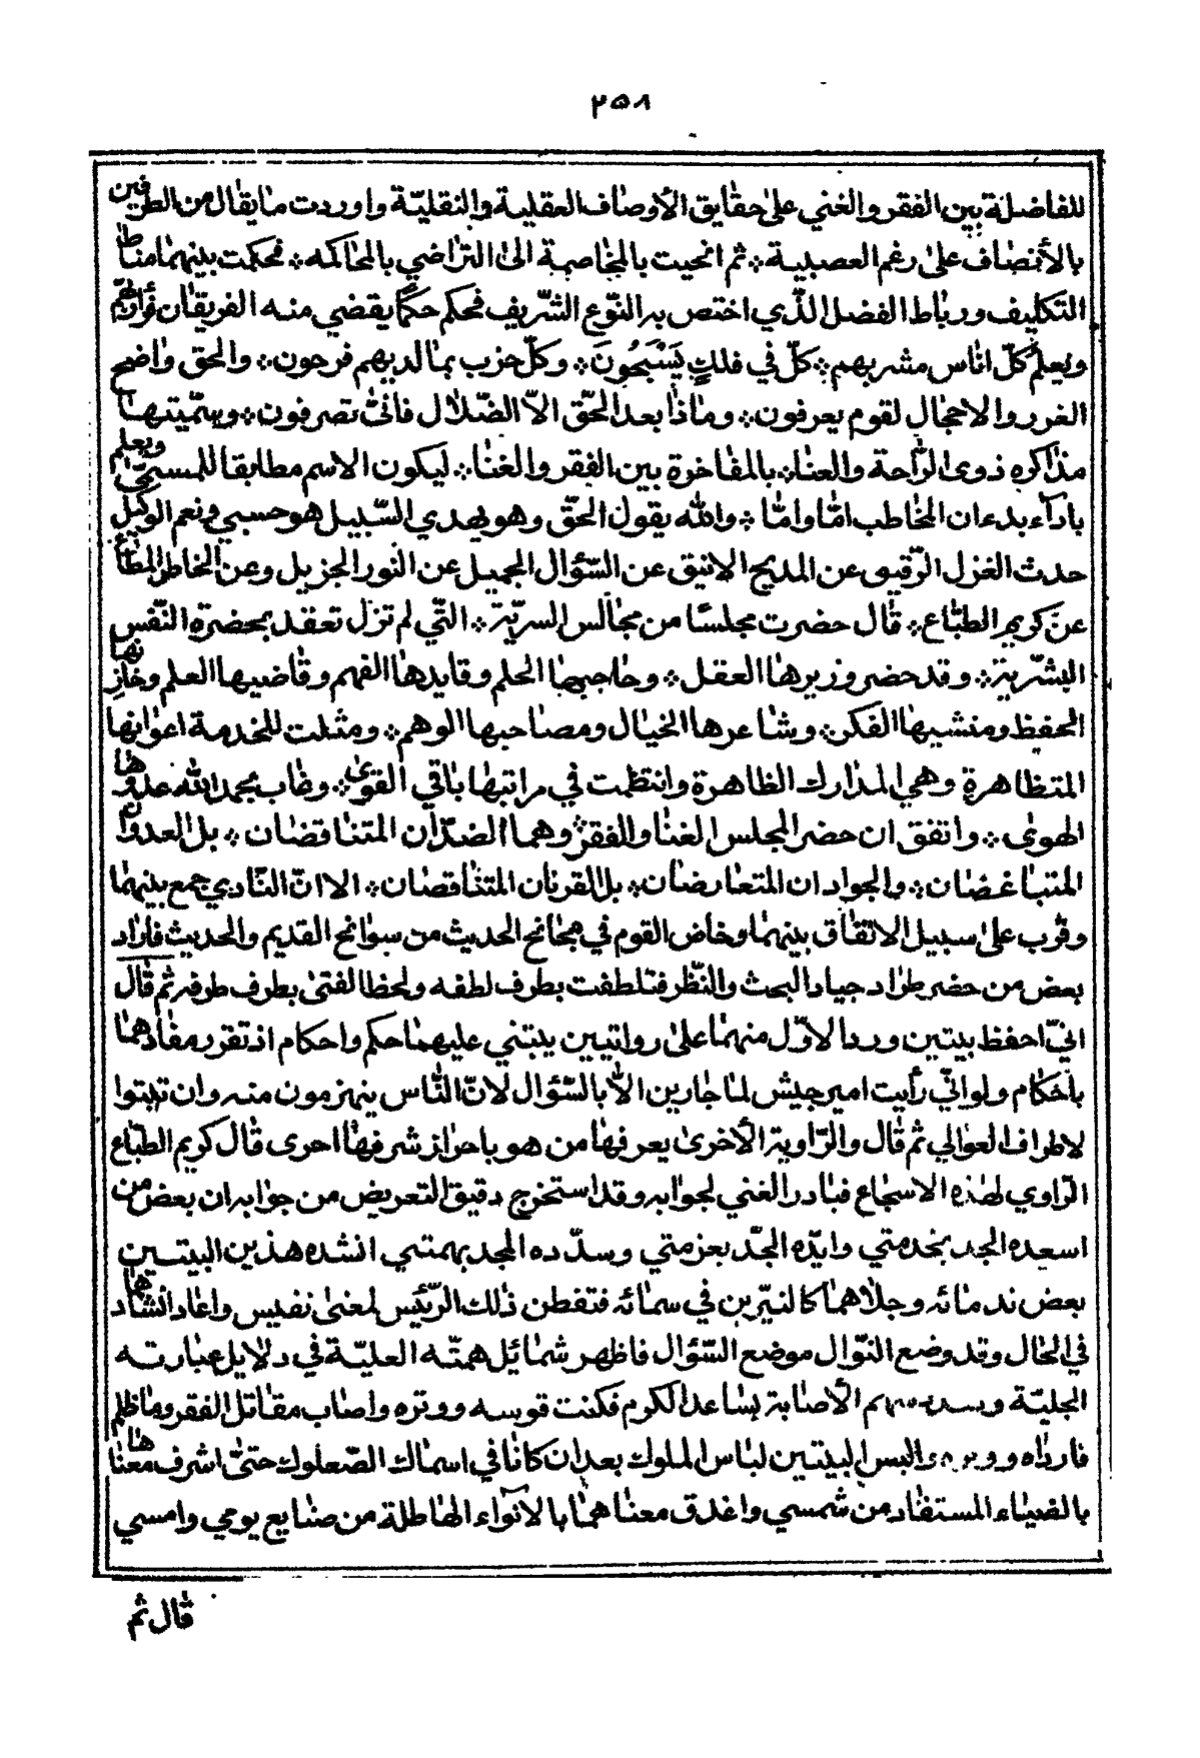 ٢٥٨
للفاضلة بين الفقر والغني علىٰ حقايق الأوصاف العقلية والنقليّة واوردت مايقال من الطرفين
بالأنصاف علىٰ رغم العصبية ※ ثم انحيت بالمخاصمة الىٰ التراضي بالمحاكمه ※ فحكمت بينهما مناط
التكليف ورباط الفضل الذّي اختص به النوّع الشّريف فحكم حكمًا يقضي منه الفريقان
ويعلم كلّ اناس مشربهم ※ كلّ في فلكٍ يَسْبَحُونَ ※ وكلّ حزب بما لديهم فرحون ※ والحق واضح
الغرر والاحجال لقوم يعرفون ※ وماذا بعد الحقّ الاّ الضّلال فانىّ تصرفون ※ وسمّيتها
مذاكره ذوى الرّاحة والعنا ※ بالمفاخرة بين الفقر والغنا ※ ليكون الاسم مطابقا للمسمّىٰ ويعلم
باداۤء بدءان المخاطب امّا واما ※ والله يقول الحقّ وهو يهدي السّبيل هو حسبي ونعم الوكيل
حدث الغزل الرّقيق عن المديح الانيق عن السّؤال الجميل عن النور الجزيل وعن الخاطر المطاع
عن كريم الطبّاع ※ قال حضرت مجلسًا من مجالس السريّة ※ التّي لم تزل تعقد بحضرة النّفس
البشّرية ※ وقد حضر وزيرها العقل ※ وحاجبها الحلم وقايدها الفهم وقاضيها العلم وخازنها
الحفظ ومنشيها الفكر ※ وشاعرها الخيال ومصاحبها الوهم ※ ومثلت للخدمة اعوانها
المتظاهرة وهي المدارك الظاهرة وانتظمت في مراتبها باقي القوىٰ ※ وغاب بحمد الله عدوها
الهوىٰ ※ واتفق ان حضر المجلس الغنا والفقر ※ وهما الضدّان المتناقضان ※ بل العدوان
المتباغضان ※ والجوادان المتعارضان ※ بل القرنان المتناقصان ※ الا انّ النّادي جمع بينهما
وقرب علىٰ سبيل الاتفاق بينهما وخاض القوم في مجانح الحديث من سوانح القديم والحديث فاراد
بعض من حضر طراد جياد البحث والنّظر فتلطفت بطرف لطفه ولحظ الفتىٰ بطرف طوفه ثم قال
انيّ احفظ بيتين ورد الاوّل منهما علىٰ روايتين ينبتني عليهما حكم واحكام اذ تقرر مفادهما
باحكام ولو انيّ رأيت امير جيش لما جارين الاّ بالسّؤال لانّ النّاس ينهزمون منه وان تبتوا
لاطراف العوالي ثم قال والرّاوية الأخرىٰ يعرفها من هو باحراز شرفها احرى قال كريم الطبّاع
الرّاوي لهذه الاسجاع فبادر الغني لجوابه وقد استخرج دقيق التعريض من جوابه ان بعض من
اسعده الجد بخدمتي وايدّه الجّد بعزمتي وسدّده المجد بهمتي انشده هذين البيتين
بعض ندمائه وجلاهما كالنيّرين في سمائه فتفطن ذلك الرّئيس لمعنىٰ نفيس واعاد انشادها
في الحال وقد وضع النوّال موضع السّؤال فاظهر شمائل همتّه العليّة في دلايل عبارته
الجليّة وسدد سهم الأصابة بساعد الكرم فكنت قوسه ووتره واصاب مقاتل الفقر وماظلم
البس البيتين لباس الملوك بعد ان كانا في اسماك الصّعلوك حتّىٰ اشرف معناها
بالضياء المستفاد من شمسي واغدق معناهما بالانوٓاء الهاطلة من صنايع يومي وامسي
قال ثم